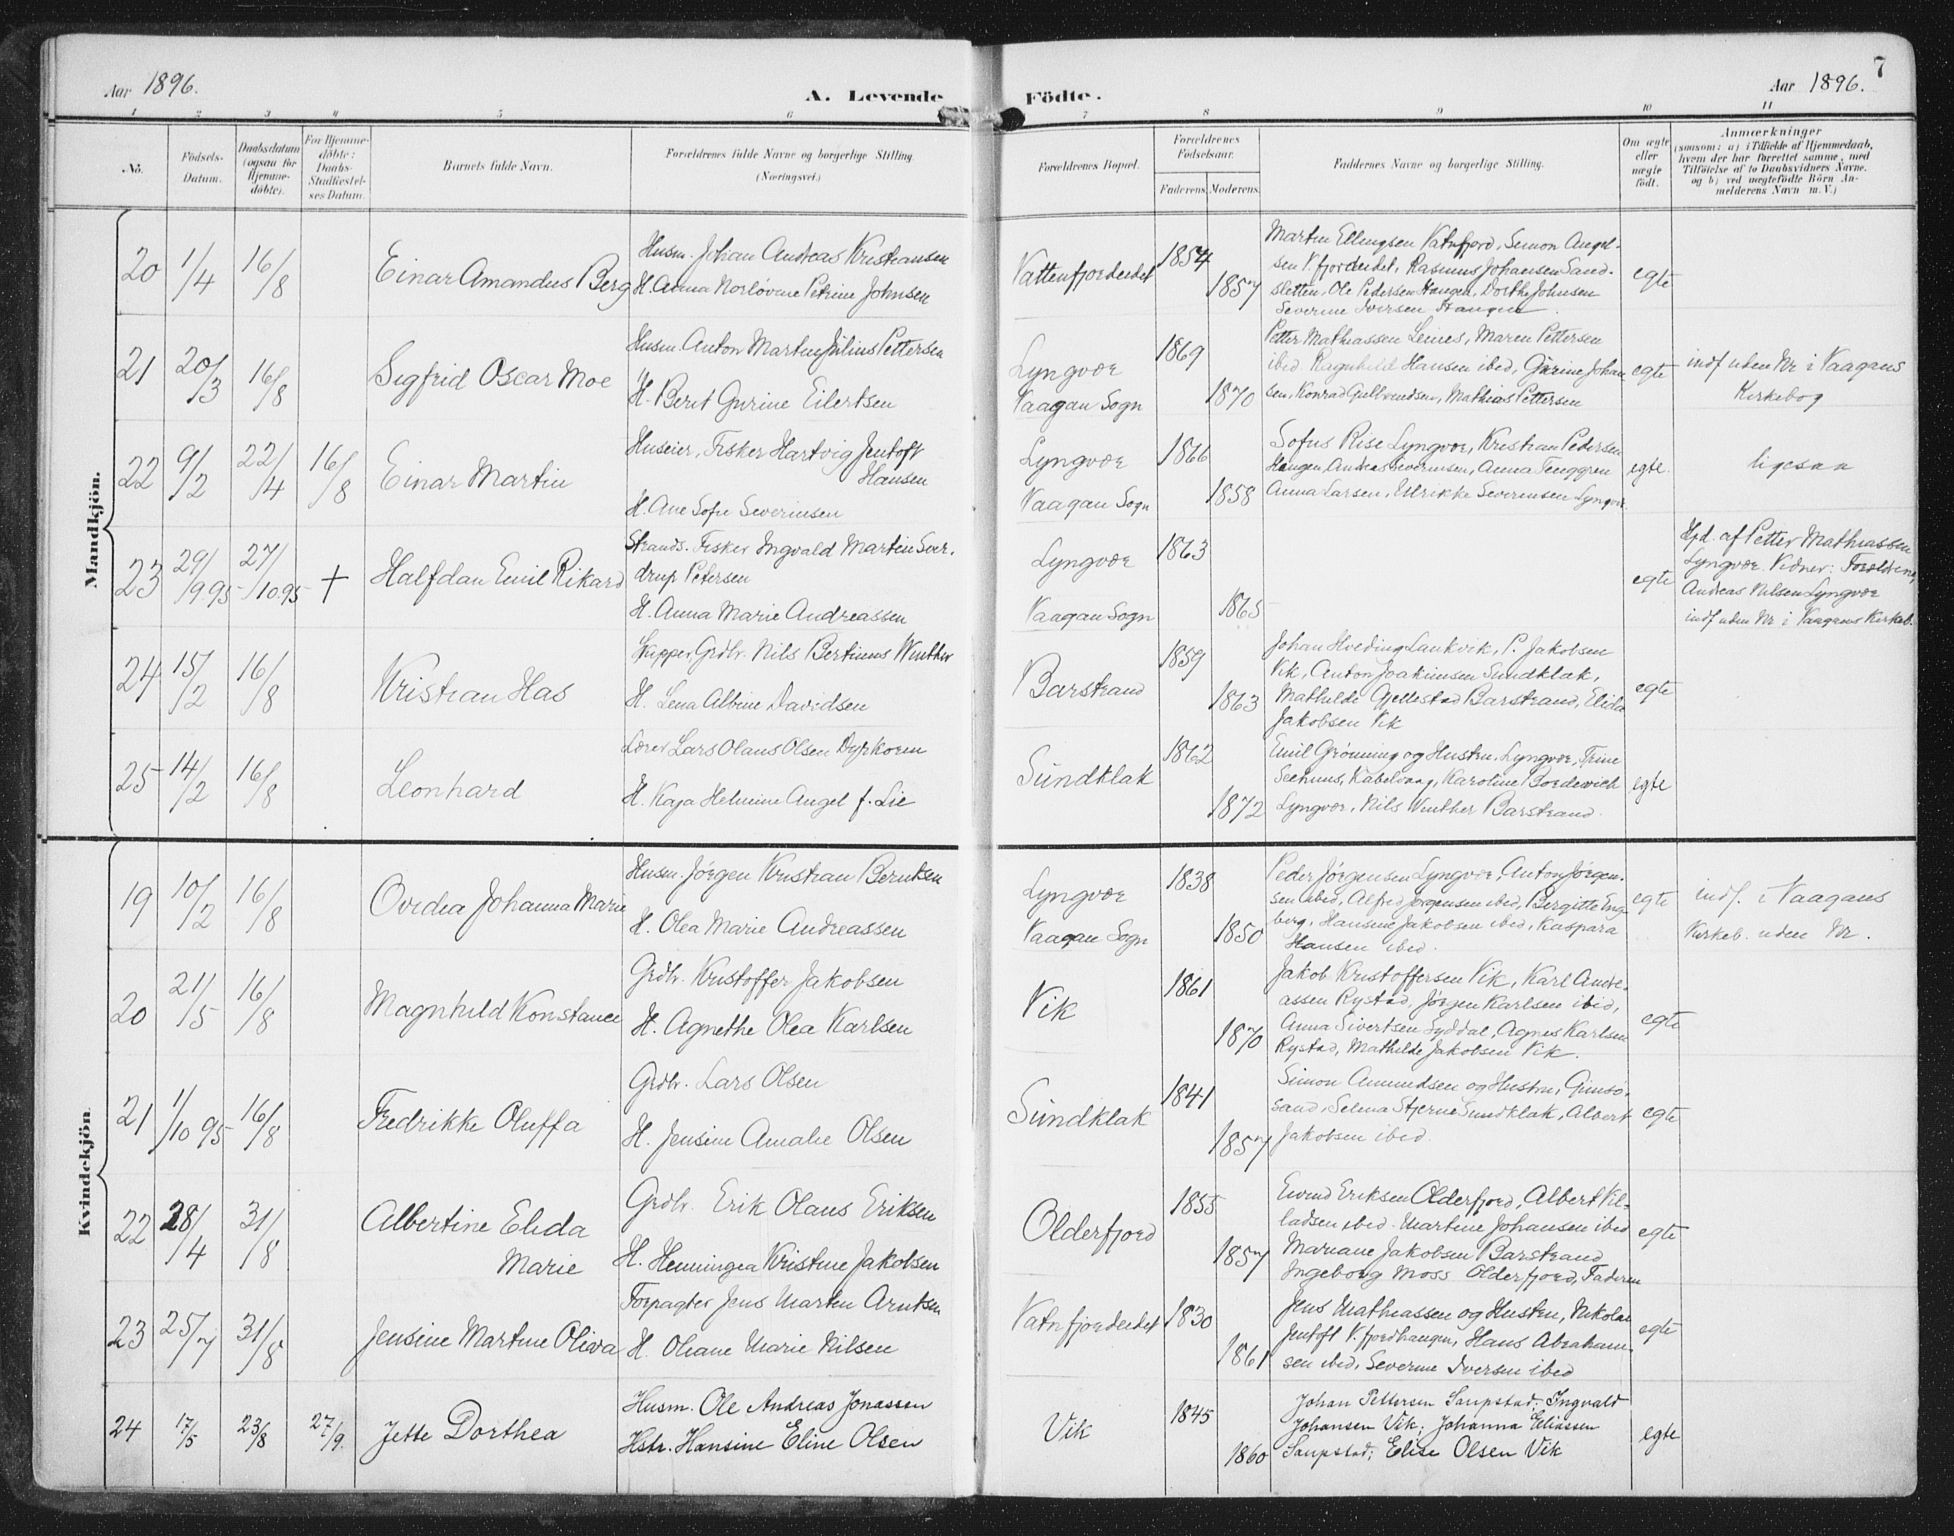 Aar 1896.
A. Levende
Födte.
Aar 1896.
7
1 2 3 4 5 6 7 8 9 10 11
No.
Födsels-
Datum.
Daabsdatum
(ogsaa for
Hjemme-
döbte).
For Hjemme-
döbte:
Daabs-
Stadfæstel-
ses Datum.
Barnets fulde Navn.
Forældrenes fulde Navne og borgerlige Stilling.
(Næringsvei.)
Forældrenes Bopæl.
Forældrenes
Födselsaar.
Faderens. Moderens.
Faddernes Navne og borgerlige Stilling.
Om ægte
eller
uægte
födt.
Anmærkninger
(saasom: a) i Tilfælde af Hjemmedaab,
hvem der har forrettet samme, med
Tilföielse af to Daabsvidners Navne,
og b) ved uægtefödte Börn An-
melderens Navn m. V.)
Mandkjön.
20 1/4 16/8 Einar Amandus Berg
Husm. Johan Andreas Kristiansen
H. Anna Norløvine Petrine Johnsen
Vattenfjordeidet 1854 1857
Martin Ellingsen Vatnfjord, Simon Angel-
sen V. fjordeidet, Rasmus Johansen Sand-
sletten, Ole Pedersen Haugen, Dorthe Johnsen
Severine Iversen Haugen.
egte
21 20/3 16/8 Sigfrid Oscar Moe
Husm. Anton Martin Julius Pettersen
H. Berit Gurine Eilertsen
Lyngvær
Vaagan Sogn
1869 1870
Petter Mathiassen Leines, Maren Pettersen
ibid. Ragnhild Hansen ibed, Gurine Johan
sen, Konrad Gullvendsen, Mathias Pettersen
egte
indf uden Nr i Vaagans
Kirkebog
22 9/2 22/4 16/8 Einar Martin
Huseier, Fisker Hartvig Jentoft
Hansen
H. Ane Sofie Severinsen
Lyngvær
Vaagan Sogn
1866 1858
Sofus Rise Lyngvær, Kristian Pedersen
Haugen, Andreas Severinsen, Anna Tenggren
Anna Larsen, Ulrikke Severinsen Lyngvær
egte.
ligesaa
23 29/9.95 27/10.95 + Halfdan Emil Rikard
Strands. Fisker Ingvald Martin Sver-
drup Petersen
H. Anna Marie Andreassen
Lyngvær
Vaagan Sogn
1863 1865
egte
Hjd. af Petter Mathiassen
Lyngvær. Vidner: Forældrene,
Andreas Nilsen Lyngvær
indf uden Nr i Vaagans Kirkeb.
24 15/2 16/8 Kristian Has
Skipper Grdbr. Nils Bertinus Winther
H. Lena Albine Davidsen
Barstrand 1859 1863
Johan Hveding Laukvik, P. Jakobsen
Vik, Anton Joakimsen Sundklak,
Mathilde Gjellestad Barstrand, Elida
Jakobsen Vik
egte
25 14/2 16/8 Leonhard
Lærer Lars Olaus Olsen Dypkoren
H. Kaja Helmine Angel f. Lie
Sundklak 1862 1872
Emil Grönning og Hustru, Lyngvær, Trine
Seehuus, Kabelvaag, Karoline Bordewich
Lyngvær, Nils Winther Barstrand.
egte
Kvindekjön.
19 10/2 16/8 Ovedia Johanna Marie
Husm. Jörgen Kristian Berntsen
H. Olea Marie Andreassen
Lyngvær
Vaagan Sogn
1838 1850
Peder Jörgensen Lyngvær, Anton Jörgen-
sen ibed, Alfred Jörgensen ibed, Bergitte Eng-
berg, Hansine Jakobsen ibed, Kaspara
Hansen ibed.
egte
indf. i Vaagans
Kirkeb. uden Nr.
20 21/5 16/8 Magnhild Konstance
Grdbr. Kristoffer Jakobsen
H. Agnethe Olea Karlsen
Vik 1861 1870
Jakob Kristoffersen Vik, Karl Andre-
assen Rystad, Jörgen Karlsen ibid,
Anna Sivertsen Syddal, Agnes Karlsen
Rystad, Mathilde Jakobsen Vik.
egte
21 1/10 95 16/8 Fredrikke Oluffa
Grdbr. Lars Olsen
H. Jensine Amalie Olsen
Sundklak 1841 1857
Simon Amundsen og Hustru, Gimsö-
sand, Selma Stjerne Sundklak, Albert
Jakobsen ibed.
egte
22 28/4 31/8 Albertine Elida
Marie
Grdbr. Erik Olaus Eriksen
H. Henningea Kristine Jakobsen
Olderfjord 1855 1857
Eivind Eriksen Olderfjord, Albert Vil-
ladsen ibed. Martine Johansen ibed
Mariane Jakobsen Barstrand
Ingeborg Moss Olderfjord, Faderen
egte
23 25/7 31/8 Jensine Martine Oliva
Forpagter Jens Martin Arntsen
H. Oliane Marie Nilsen
Vatnfjordeidet 1830 1861
Jens Mathiassen og Hustru, Nikolai
Jentoft V. fjordhaugen, Hans Abraham-
sen ibed, Severine Iversen ibed
egte
24 17/5 23/8 27/9. Jette Dorthea
Husm. Ole Andreas Jonassen
Hstr. Hansine Eline Olsen
Vik 1845 1860
Johan Pettersen Saupstad; Ingvald
Johansen Vik; Johanna Eliassen
Saupstad; Elise Olsen Vik
egte